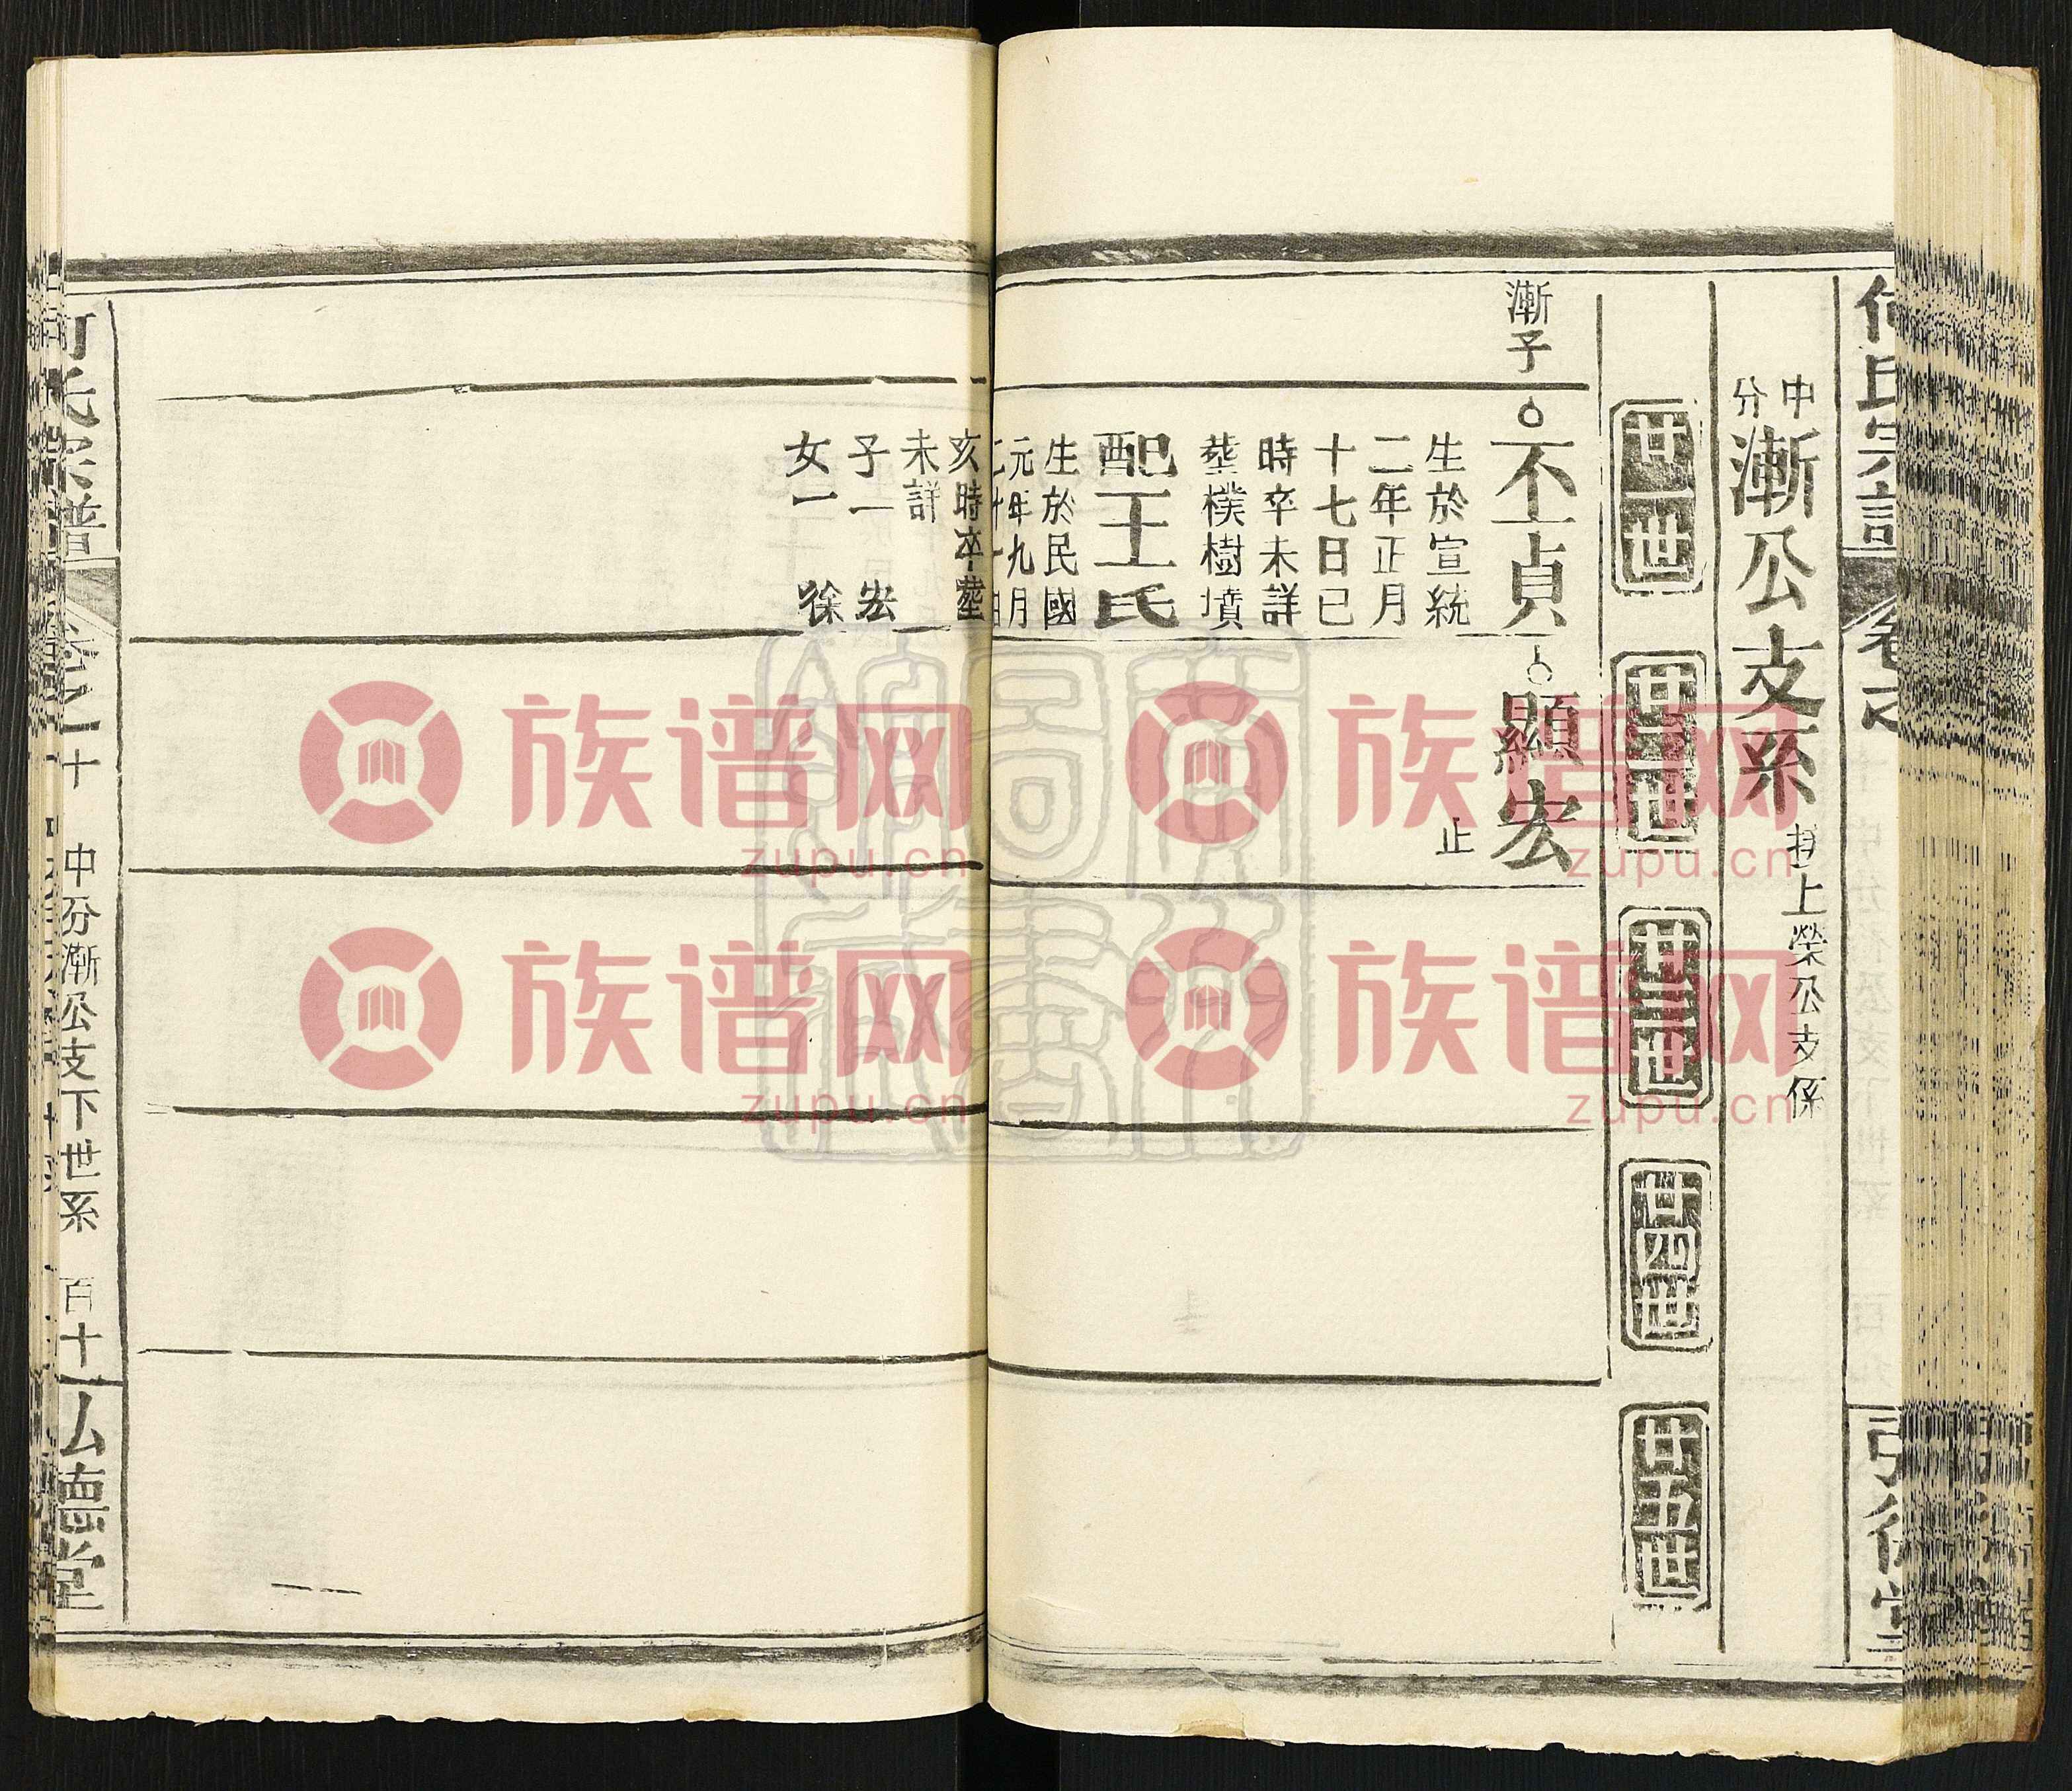 何氏宗譜
中分漸公支系
接上榮公支係
廿一世
廿二世
廿三世
廿四世
廿五世
漸子
丕貞
生於宣統
二年正月
十七日巳
時卒未詳
葬樸樹墳
配王氏
生於民國
元年九月
二十一日
亥時卒葬
未詳
子一 宏
女一 徐
顯宏
止
何氏宗譜
卷之一十
中分漸公支下世系
百十一
弘德堂
族谱网
zupu.cn
族谱网
zupu.cn
族谱网
zupu.cn
族谱网
zupu.cn